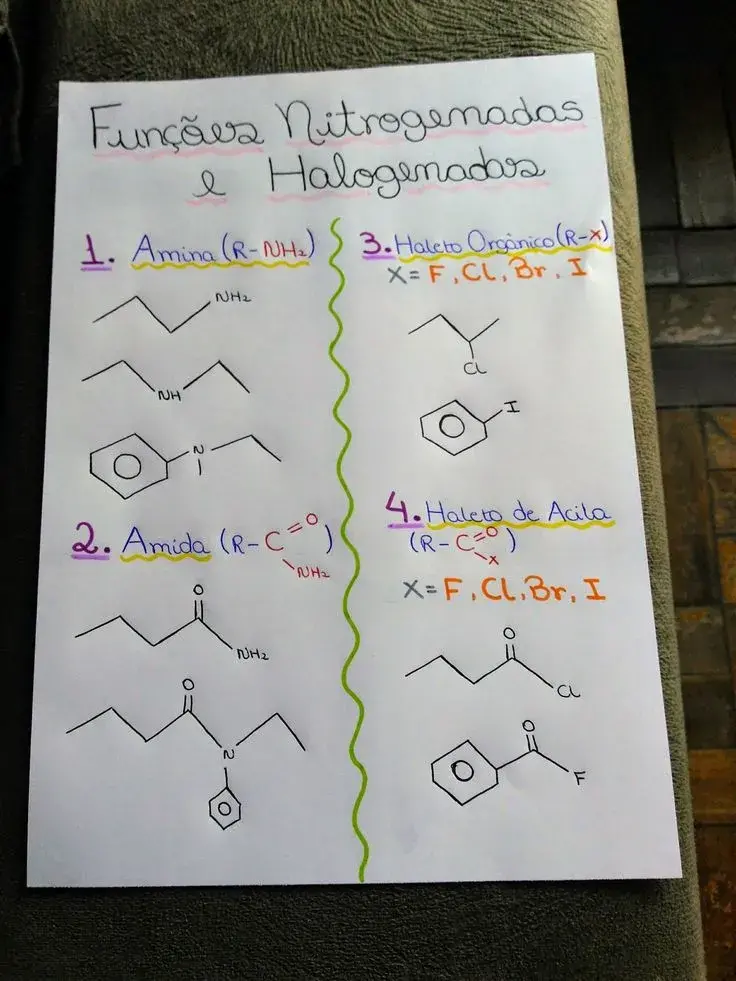 Funções Nitrogenadas
e Halogenadas
1. Amina (R-NH2)
NH2
NH
N
2. Amida (R-C=O NH2)
O
NH2
O
N
3. Haleto Orgânico (R-X)
X= F, Cl, Br, I
Cl
I
4. Haleto de Acila
(R-C=O X)
X= F, Cl, Br, I
O
Cl
O
F